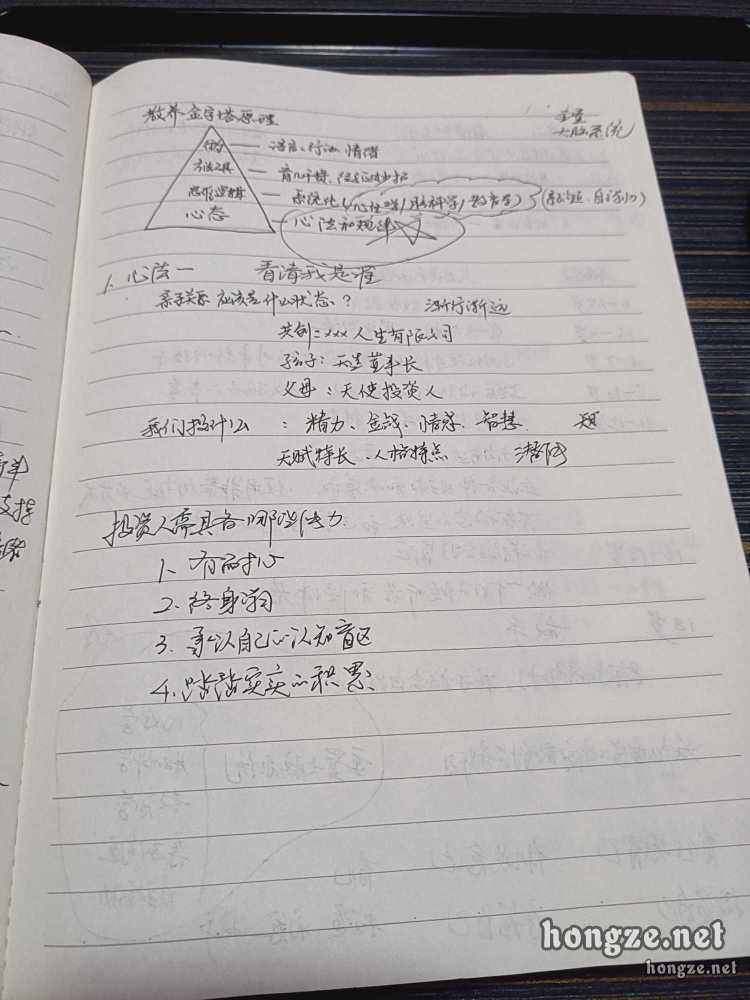 教养金字塔原理
重塑
大脑系统
行为 — 语言、行动、情绪
方法工具 — 育儿干操、
思维逻辑 — 系统化(心理学/脑科学/教育学)
心态 — 心法和规律
1. 心法一 看清我是谁
亲子关系应该是什么状态? 渐行渐远
共创:xxx人生有限公司
孩子:天生董事长
父母:天使投资人
我们投什么:精力、金钱、情绪、智慧
天赋特长、人格特点 潜能
投资人需具备哪些能力
1、有耐心
2、终身学习
3、承认自己的认知盲区
4、踏踏实实的积累
hongze.net
hongze.net